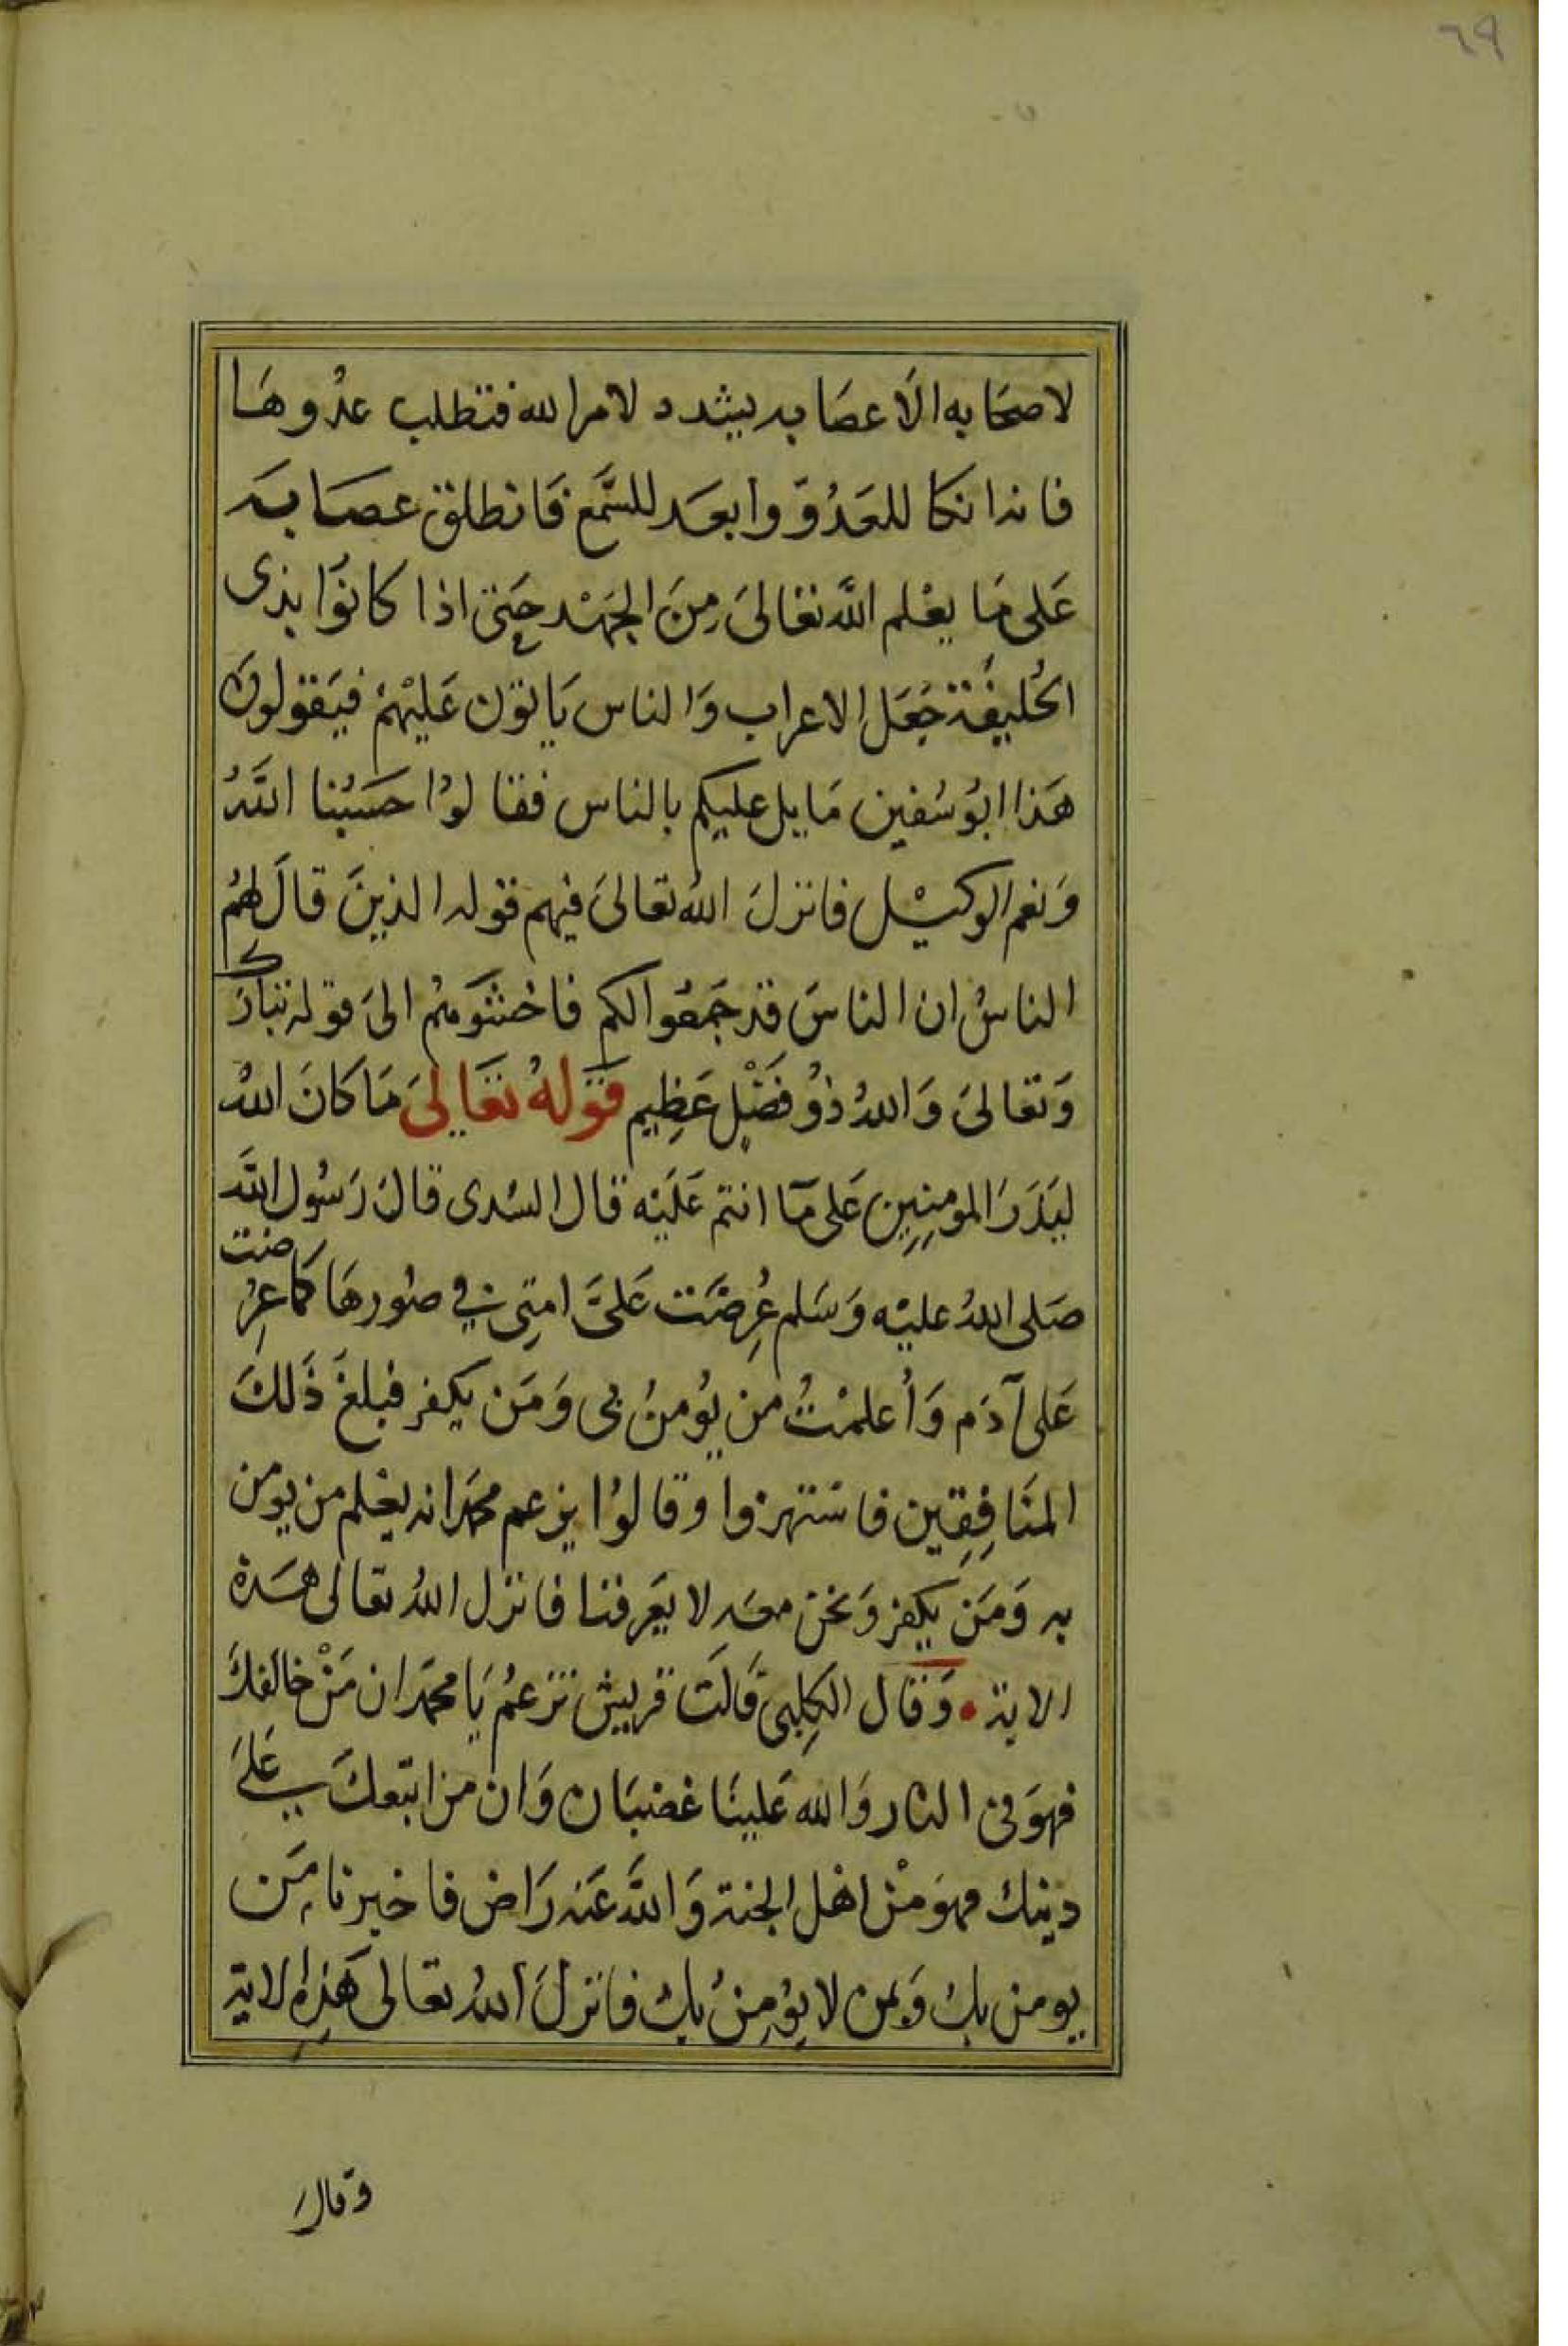 ٦٩
لاصحَابه الَا عصَابه يشدد لامر الله فتطلب عدُوهَا
فانه انكا للعَدُوّ وابعَد للسَّمع فَانطلق عصَابَه
عَلى مَا يعْلم اللَّه تعَالىَ مِنَ الجَهْد حَتى اذا كانوُا بذى
الحُليفَة جَعَل الاعراب وَالناس يَاتوُن عَليْهمْ فيَقولونَ
هَذا ابوُ سُفين مَايل عليكم بالناس فقالوُا حَسبُنا اللَّهُ
وَنعم الوكيْل فانزلَ اللهُ تعَالىَ فيهم قوله الذينَ قالَ لهُم
الناسُ ان الناسَ قد جَمعُوا لكم فاخشَوهُم الىَ قوله تبَارَك
وَتعَالىَ وَاللهُ ذوُ فَضْلٍ عَظِيم قَوَلهُ تعَالىَ مَا كانَ اللهُ
ليَذَرَ المومِنِين عَلى مَا انتم عَليْه قال السُدى قالَ رَسُول اللَّه
صَلى اللهُ عليْه وَسَلم عُرِضَت عَلىَّ امتِى في صُورهَا كمَا عرِضت
عَلى آدَم وَأُعلمْتُ من يُومنُ بى وَمَن يكفر فبلغَ ذَلكَ
المنَافِقِين فاسْتهزوا وقالوُا يزعم محمَد انه يعْلم من يومن
به وَمَن يكفر وَنحن معَه لا يَعرفنا فانزل اللهُ تعَالى هَذه
الاية • وَقال الكلِبى قَالَت قريش تزعمُ يَا محمَد ان مَنْ خالفكَ
فهوَ فى النار وَالله عَلينَا غضبَان وَان من اتبعكَ عَلىَ
دينك فهوَ مْن اهْل الجنة وَاللَّه عَنه رَاض فاخبرنا مَن
يومن بك وَبمن لا يوُمِنُ بك فانزلَ اللهُ تعَالى هَذِه الاية
وقالَ